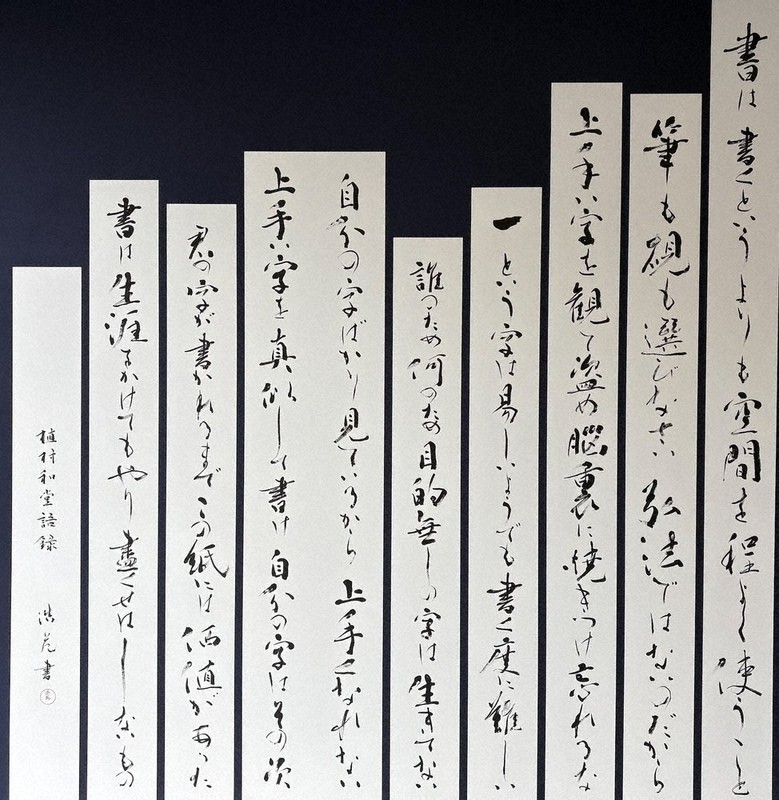 書は書くというよりも空間を程よく使うこと
筆も硯も選びなさい 弘法ではないのだから
上手い字を観て盗め脳裏に焼きつけ忘れるな
一という字は易しいようでも書く度に難しい
誰のため何のため目的無しの字は生きてない
自分の字ばかり見ているから 上手くなれない
上手い字を真似して書け 自分の字はその次
君の字が書かれるまでこの紙には価値があった
書は生涯をかけてもやり盡くせはしないもの
植村和堂語録 書